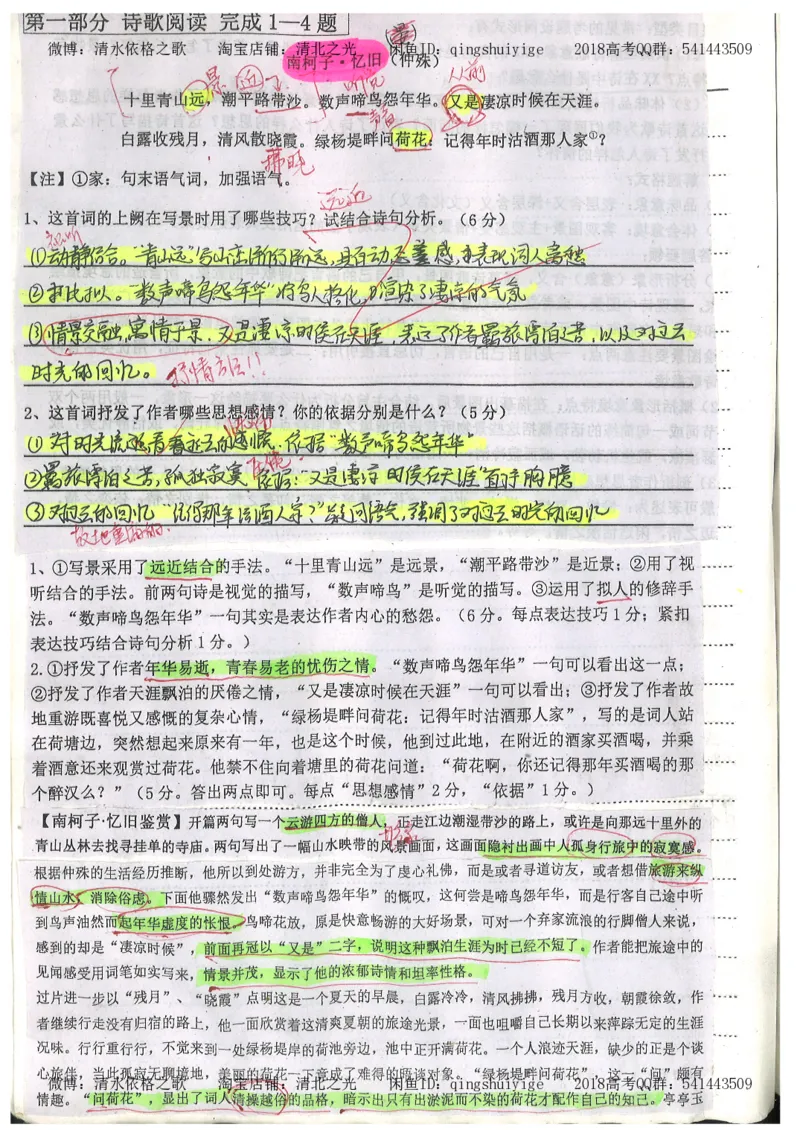 第一部分 诗歌阅读 完成1—4题
微博：清水依格之歌 淘宝店铺：清北之光 闲鱼ID：qingshuiyige 2018高考QQ群：541443509
南柯子·忆旧（仲殊）
景 近 听觉 人前
十里青山远，潮平路带沙。数声啼鸟怨年华。又是凄凉时候在天涯。
白露收残月，清风散晓霞。绿杨堤畔问荷花：记得年时沽酒那人家①？
拂晓
【注】①家：句末语气词，加强语气。
远近
1、这首词的上阕在写景时用了哪些技巧？试结合诗句分析。（6分）
视听
①动静结合。“青山远”
②打比拟。“数声啼鸟怨年华”将鸟人格化，渲染了凄凉的气氛
③情景交融，寓情于景。又是凄凉时候在天涯，表达了作者羁旅漂泊之苦，以及对过去
时光的回忆。
抒情方法！！
2、这首词抒发了作者哪些思想感情？你的依据分别是什么？（5分）
①对时光流逝 的感慨。依据“数声啼鸟怨年华”
②羁旅漂泊之苦，孤独寂寞，依据：“又是凄凉时候在天涯”直抒胸臆
③对过去的回忆 “记得那年沽酒人家？”疑问语气，强调了对过去时光的回忆
故地重游的
1、①写景采用了远近结合的手法。“十里青山远”是远景，“潮平路带沙”是近景；②用了视
听结合的手法。前两句诗是视觉的描写，“数声啼鸟”是听觉的描写。③运用了拟人的修辞手
法。“数声啼鸟怨年华”一句其实是表达作者内心的愁怨。（6分。每点表达技巧1分；紧扣
表达技巧结合诗句分析1分。）
2.①抒发了作者年华易逝，青春易老的忧伤之情。“数声啼鸟怨年华”一句可以看出这一点；
②抒发了作者天涯飘泊的厌倦之情，“又是凄凉时候在天涯”一句可以看出；③抒发了作者故
地重游既喜悦又感慨的复杂心情，“绿杨堤畔问荷花：记得年时沽酒那人家”，写的是词人站
在荷塘边，突然想起来原来有一年，也是这个时候，他到过此地，在附近的酒家买酒喝，并乘
着酒意还来观赏过荷花。他禁不住向着塘里的荷花问道：“荷花啊，你还记得那年买酒喝的那
个醉汉么？”（5分。答出两点即可。每点“思想感情”2分，“依据”1分。）
【南柯子·忆旧鉴赏】开篇两句写一个云游四方的僧人，正走江边潮湿带沙的路上，或许是向那远十里外的
青山丛林去找寻挂单的寺庙。两句写出了一幅山水映带的风景画面，这画面隐衬出画中人孤身行旅中的寂寞感。
根据仲殊的生活经历推断，他所以到处游方，并非完全为了虔心礼佛，而是或者寻道访友，或者想借旅游来纵
情山水，消除俗虑。下面他骤然发出“数声啼鸟怨年华”的慨叹，这何尝是啼鸟怨年华，而是行客自己途中听
到鸟声油然而起年华虚度的怅恨。鸟啼花放，原是快意畅游的大好场景，可对一个弃家流浪的行脚僧人来说，
感到的却是“凄凉时候”，前面再冠以“又是”二字，说明这种飘泊生涯为时已经不短了。作者能把旅途中的
见闻感受用词笔如实写来，情景并茂，显示了他的浓郁诗情和坦率性格。
过片进一步以“残月”、“晓霞”点明这是一个夏天的早晨，白露冷冷，清风拂拂，残月方收，朝霞徐敛，作
者继续行走没有归宿的路上，他一面欣赏着这清爽夏朝的旅途光景，一面也咀嚼自己长期以来萍踪无定的生涯
况味。行行重行行，不觉来到一处绿杨堤岸的荷池旁边，池中正开满荷花。一个人浪迹天涯，缺少的正是个谈
心旅伴，当此孤寂无聊境地，美丽的荷花一下竟成了难得的晤谈对象。“绿杨堤畔问荷花”，这一“问”颇有
微博：清水依格之歌 淘宝店铺：清北之光 闲鱼ID：qingshuiyige 2018高考QQ群：541443509
情趣。“问荷花”，显出了词人清操越俗的品格，暗示出只有出淤泥而不染的荷花才配作自己的知己。亭亭玉